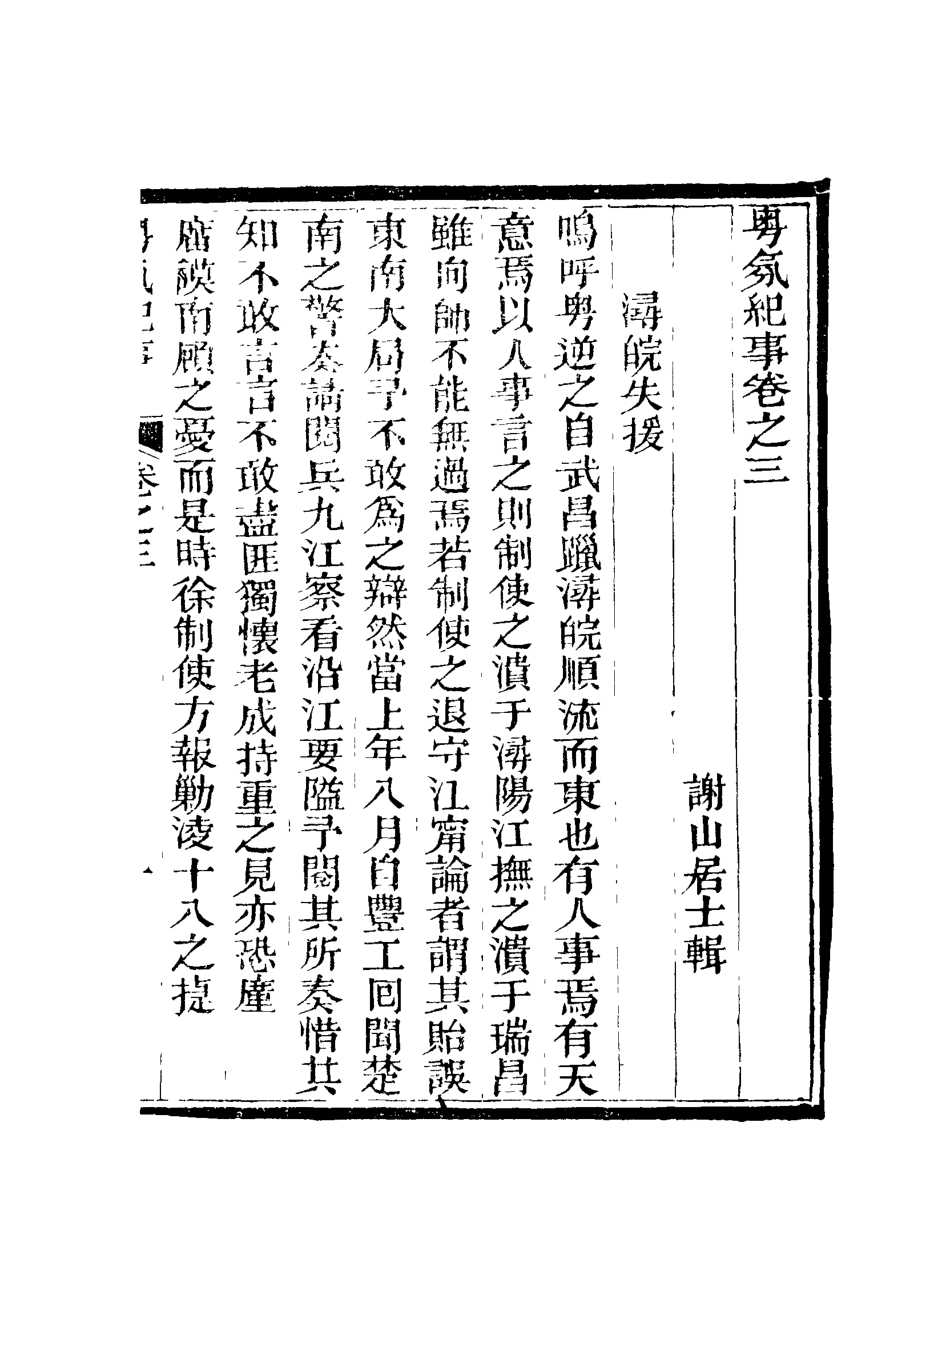 粤氛紀事卷之三
謝山居士輯
潯皖失援
嗚呼粤逆之自武昌躐潯皖順流而東也有人事焉有天
意焉以人事言之則制使之潰于潯陽江撫之潰于瑞昌
雖向帥不能無過焉若制使之退守江甯論者謂其貽誤
東南大局予不敢爲之辯然當上年八月自豐工回聞楚
南之警奏請閱兵九江察看沿江要隘予閱其所奏惜其
知不敢言言不敢盡匪獨懷老成持重之見亦恐廑
廟謨南顧之憂而是時徐制使方報勦淩十八之捷
粤氛紀事 卷之三 一